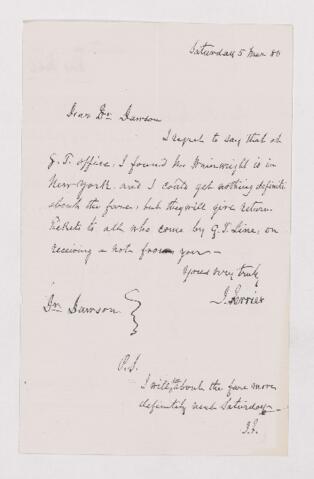 Saturday 5 Mar 80
Dear Dr. Dawson
I regret to say that at
G. T. office, I found Mr Wainwright is in
New York and I could get nothing definite
about the fares, but they will give return
tickets to all who come by G. T. Line, on
receiving a note from you —
Yours very truly
J. Ferrier
Dr. Dawson
P. S.
I will about the fare more
definitely next Saturday —
J. F.